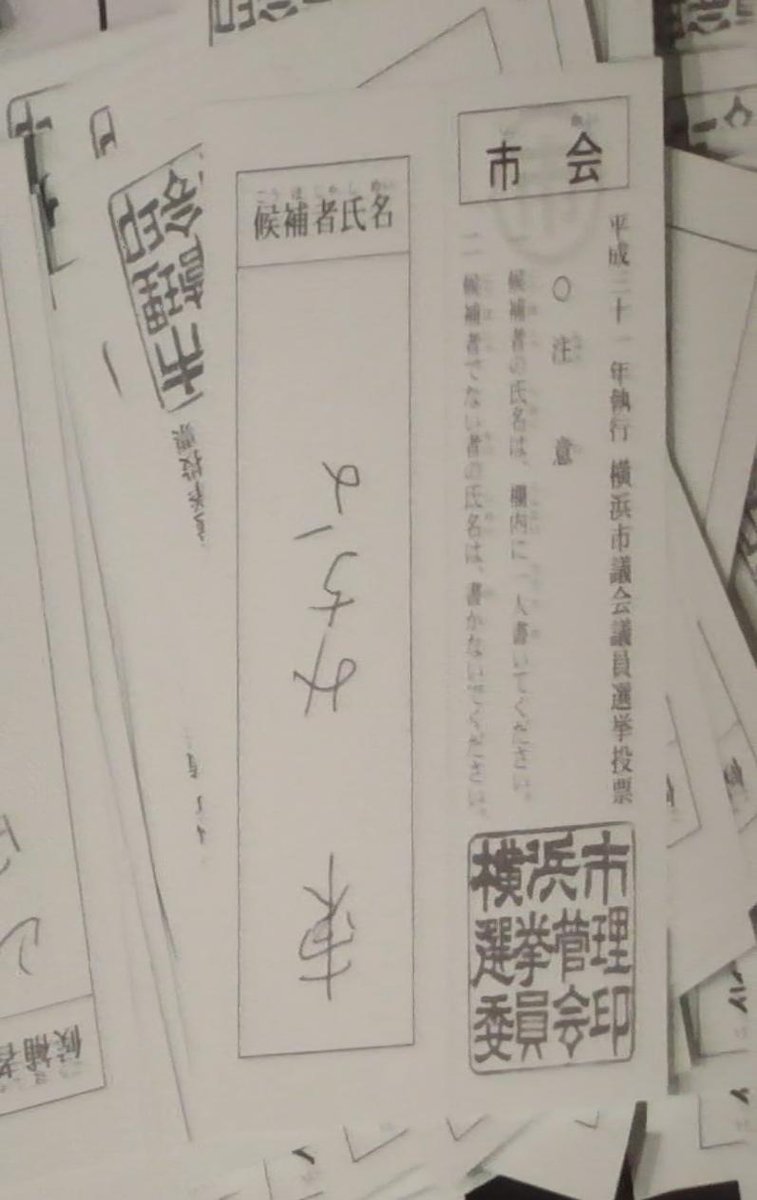 市会
平成三十一年執行 横浜市議会議員選挙投票
〇注意
一 候補者の氏名は、欄内に一人書いてください。
二 候補者でない者の氏名は、書かないでください。
候補者氏名
東 みちよ
横浜市
選挙管理
委員会印